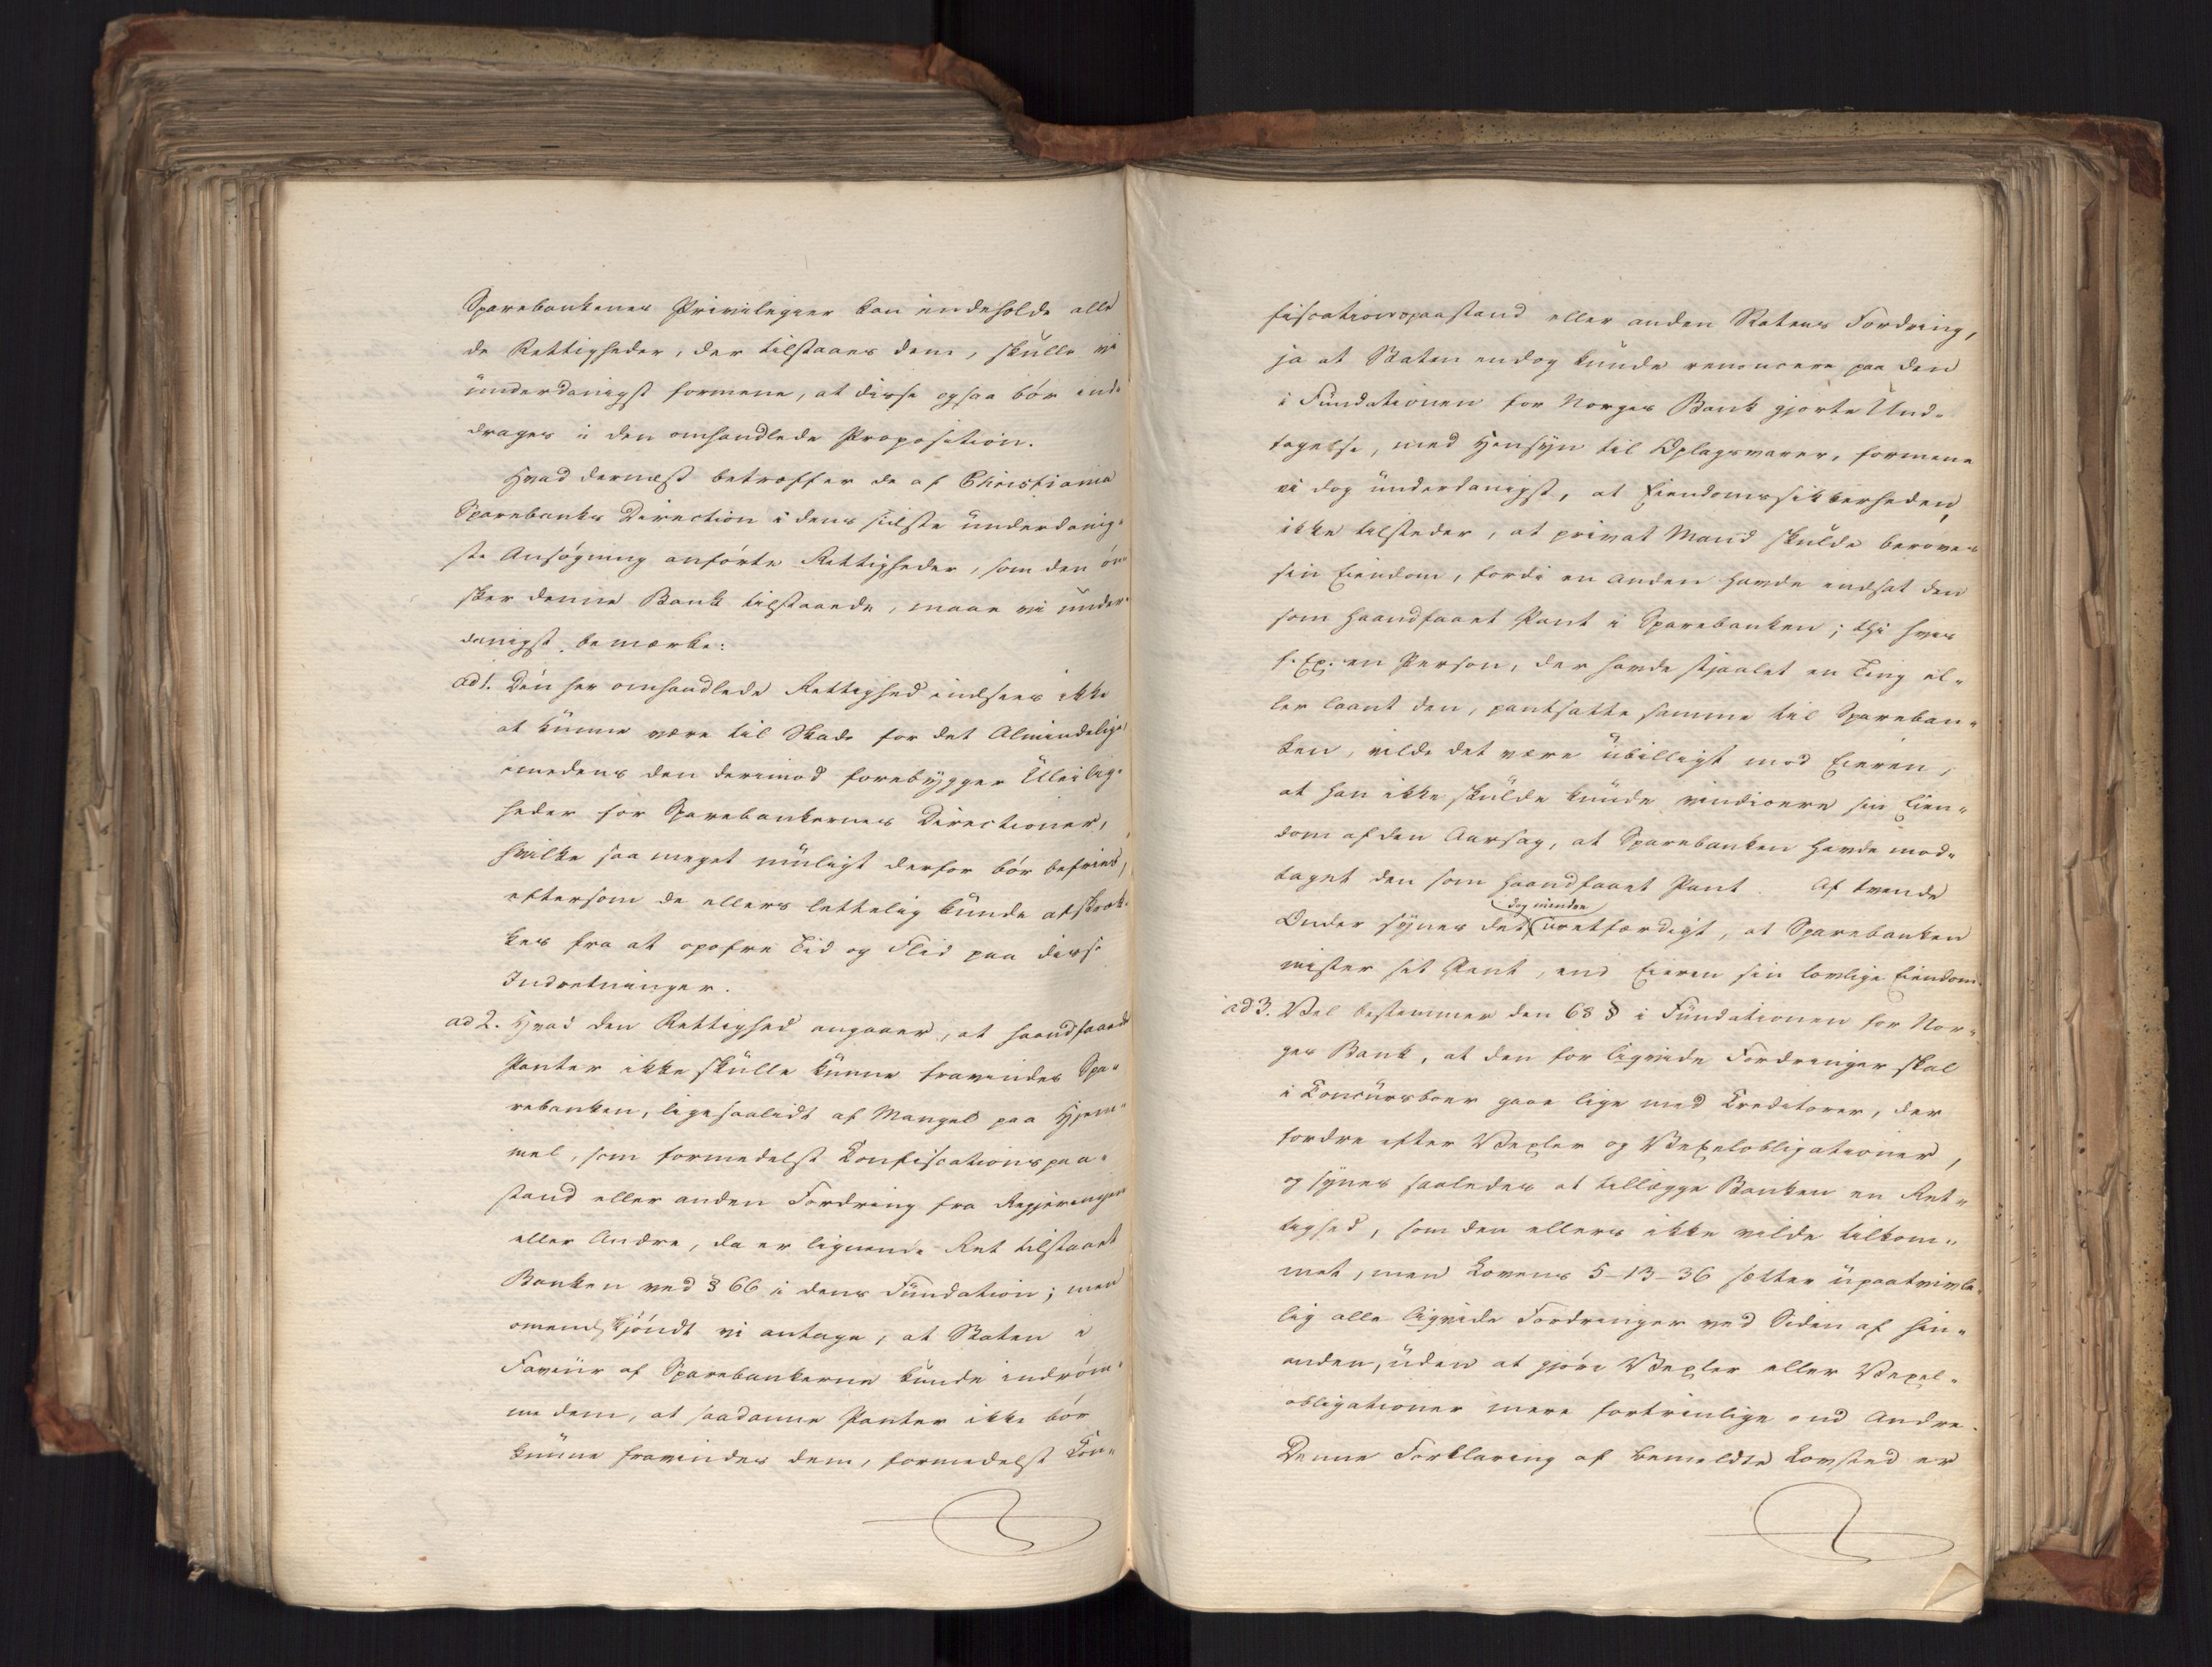 Sparebankenes Privilegier kan indeholde alle
de Rettigheder, der tilstaaes dem, skulle vi
underdanigst formene, at disse ogsaa bör ind-
drages i den omhandlede Proposition.
Hvad dernæst betræffer de af Christiania
Sparebanks Direction i dens sidste underdanig-
ste Ansögning anförte Rettigheder, som den ön-
sker denne Bank tilstaaede, maae vi under-
danigst bemærke:
ad 1. Den her omhandlede Rettighed indsees ikke
at kunne være til Skade for det Almindelige
imedens den derimod forebygger Uleilig-
heder for Sparebankernes Directioner,
hvilke saa meget muligt derfor bör befries,
eftersom de ellers lettelig kunde afskræk-
kes fra at opofre Tid og Flid paa disse
Indretninger.
ad 2. Hvad den Rettighed angaaer, at haandfaaede
Panter ikke skulle kunne fravindes Spa-
rebanken, ligesaalidt af Mangel paa Hjem-
mel, som formedelst Confiscationspaa-
stand eller anden Fordring fra Regjeringen
eller Andre, da er lignende Ret tilstaaet
Banken ved § 66 i dens Fundation; men
omendskjöndt vi antage, at Staten i
Faveur af Sparebankerne kunde indröm-
me dem, at saadanne Panter ikke bör
kunne fravindes dem, formedelst Con-
fiscationspaastand eller anden Statens Fordring,
ja at Staten endog kunde renoncere paa den
i Fundationen for Norges Bank gjorte Und-
tagelse, med Hensyn til Oplagsvarer, formene
vi dog underdanigst, at Eiendomssikkerheden,
ikke tilsteder, at privat Mand skulde beröves
sin Eiendom, fordi en Anden havde indsat den
som haandfaaet Pant i Sparebanken; thi hvis
f. Ex. en Person, der havde stjaalet en Ting el-
ler laant den, pantsatte samme til Spareban-
ken, vilde det være ubilligt mod Eieren,
at han ikke skulde kunde vindicere sin Eien-
dom af den Aarsag, at Sparebanken havde mod-
taget den som haandfaaet Pant. Af tvende
dog mindre
Onder synes det uretfærdigt, at Sparebanken
mister sit Pant, end Eieren sin lovlige Eiendom.
ad 3. Vel bestemmer den 68 § i Fundationen for Nor-
ges Bank, at den for liqvide Fordringer skal
i Concursboer gaae lige med Creditorer, der
fordre efter Vexler og Vexelobligationer,
og synes saaledes at tillægge Banken en Ret-
tighed, som den ellers ikke vilde tilkom-
met, men Lovens 5-13-36 sætter upaatvivle-
lig alle liqvide Fordringer ved Siden af hin-
anden, uden at gjöre Vexler eller Vexel-
obligationer mere fortrinlige end Andre.
Denne Forklaring af bemeldte Lovsted er